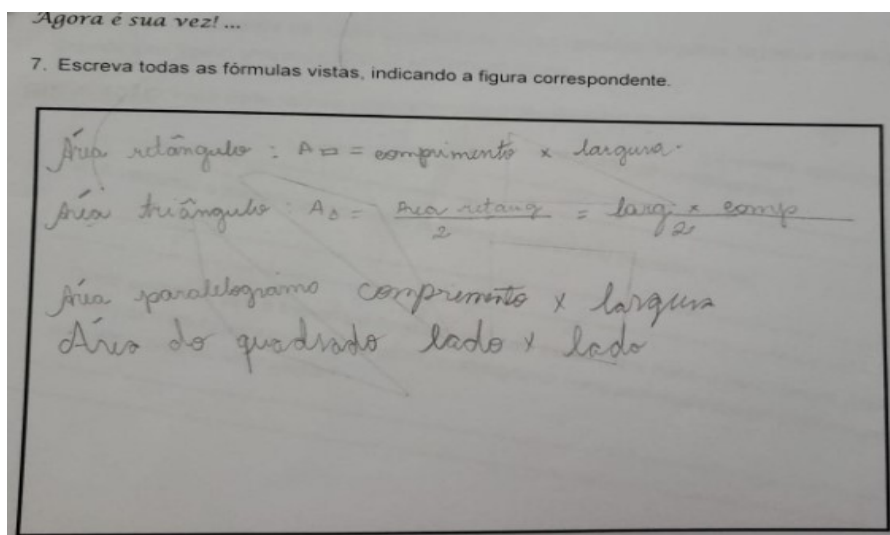 Agora é sua vez! ...
7. Escreva todas as fórmulas vistas, indicando a figura correspondente.
Área retângulo : A▭ = comprimento x largura.
Área triângulo : A△ = Área retang / 2 = larg. x comp / 2
Área paralelogramo comprimento x largura
Área do quadrado lado x lado